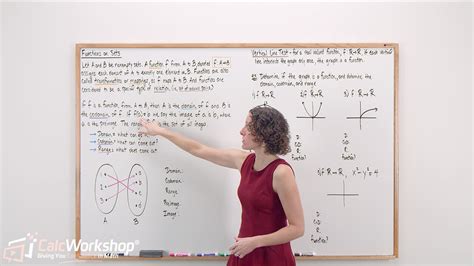 Functions on Sets
Let A and B be nonempty sets. A function f from A to B denoted f: A→B
assigns each element of A to exactly one element in B. Functions are also
called transformations or mappings, as f maps A to B. And functions are
considered to be a special type of relation (i.e., set of ordered pairs).
If f is a function from A to B, then A is the domain of f and B is
the codomain of f. If f(a) = b we say the image of a is b, where
a is the preimage. The range is the set of all images.
→ Domain = what can
→ Codomain = what can come out?
→ Range = what does come out?
A
B
Domain:
Codomain:
Range:
Preimage:
Image:
Vertical Line Test - For a real valued function, f: R→R, if each vertical
line intersects the graph only once, the graph is a function.
Ex) Determine if the graph is a function, and determine the
domain, codomain, and range.
f: R→R
f: R→R
D:
C:
R:
Function?
D:
C:
R:
Function?
f: R→R, x² - y² = 4
D:
C:
R:
Function?
CalcWorkshop®